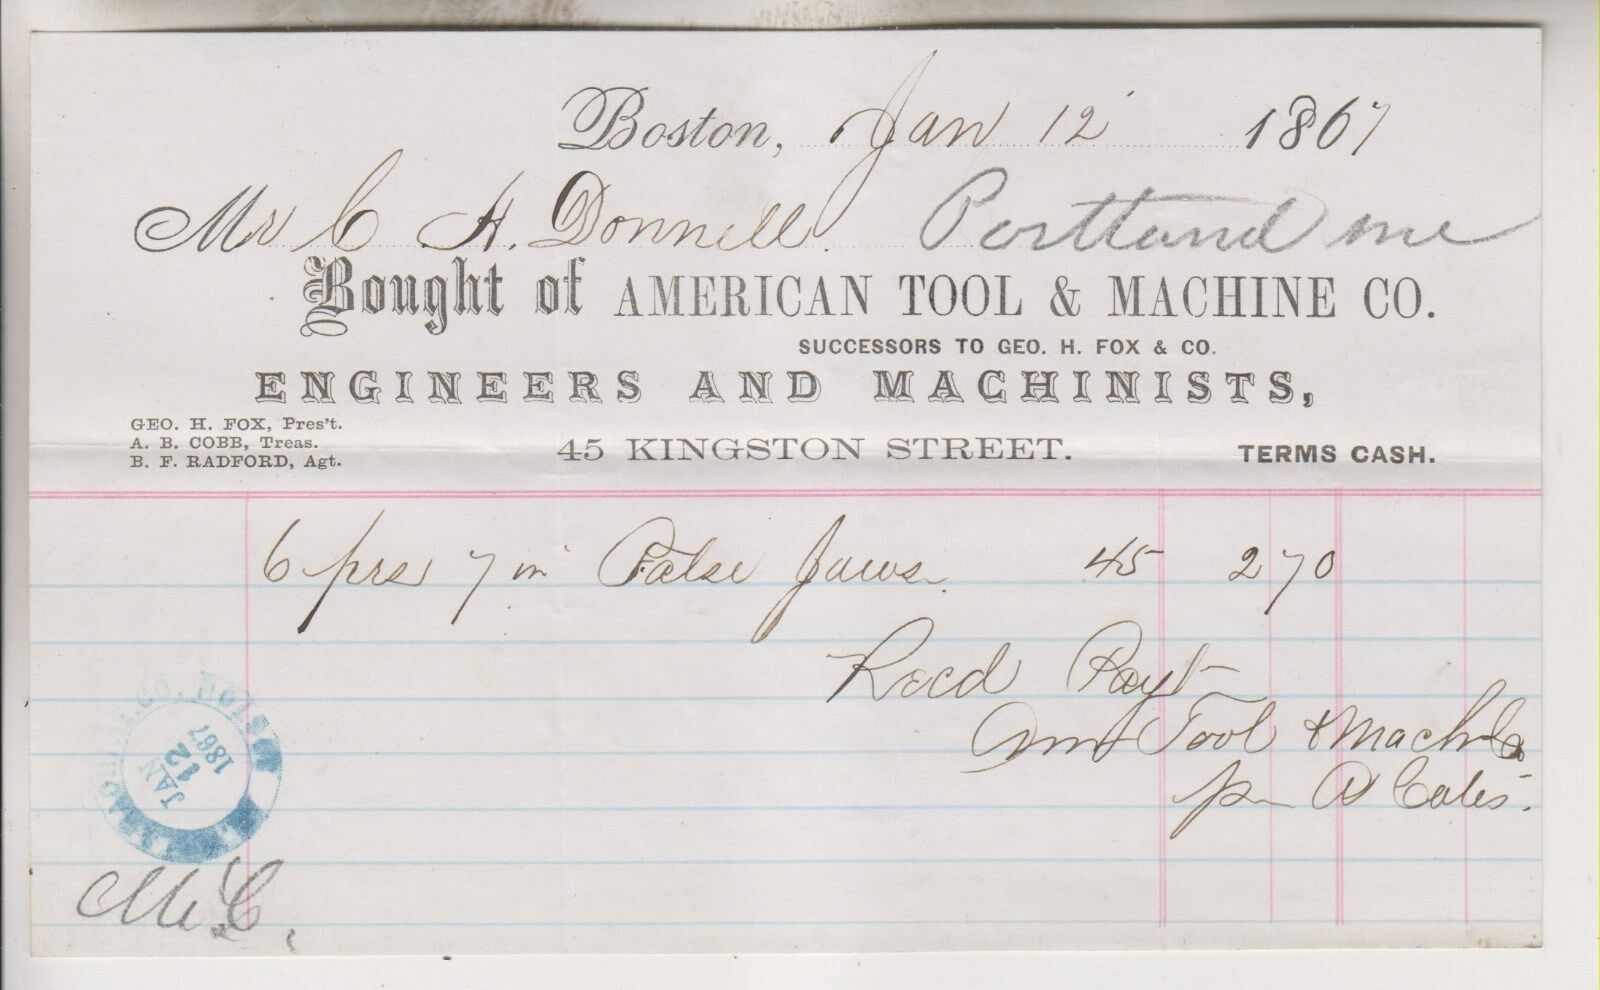 Boston, Jan 12 1867
Mr C. H. Donnell. Portland Me
Bought of AMERICAN TOOL & MACHINE CO.
SUCCESSORS TO GEO. H. FOX & CO.
ENGINEERS AND MACHINISTS,
GEO. H. FOX, Pres't.
A. B. COBB, Treas.
B. F. RADFORD, Agt.
45 KINGSTON STREET.
TERMS CASH.
6 prs 7 in False Jaws. 45 270
Recd Payt
Am Tool & Mach Co
JAN
12
1867